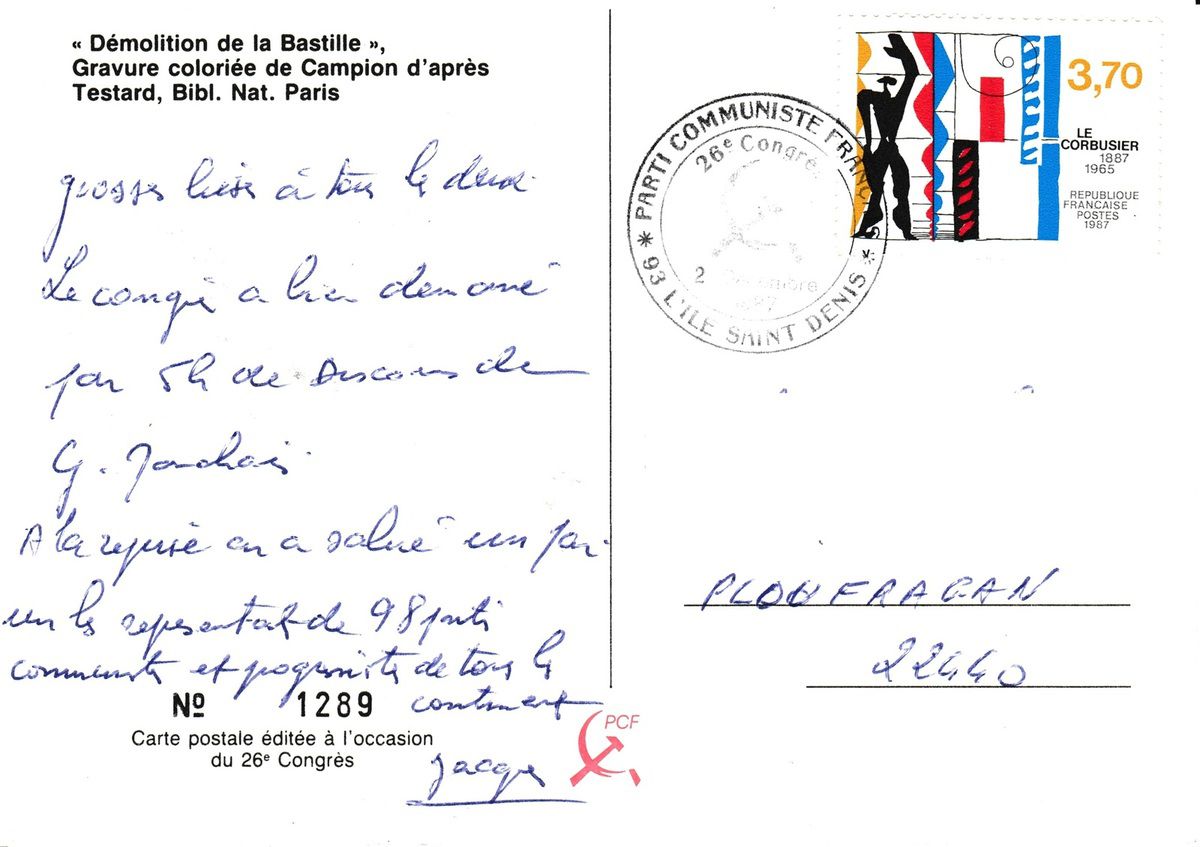 « Démolition de la Bastille »,
Gravure coloriée de Campion d'après
Testard, Bibl. Nat. Paris
grosses bises à tous les deux.
Le congrè a bien démarré
par 5h de discours de
G. Marchais.
A la reprise on a salué un par
un les représentants de 98 partis
communistes et progressistes de tous les
continents
Jacques
Nº 1289
Carte postale éditée à l'occasion
du 26e Congrès
PCF
* PARTI COMMUNISTE FRANÇ
* 93 L'ILE SAINT DENIS *
26e Congrè
2
3,70
LE
CORBUSIER
1887
1965
REPUBLIQUE
FRANCAISE
POSTES
1987
PLOUFRAGAN
22440